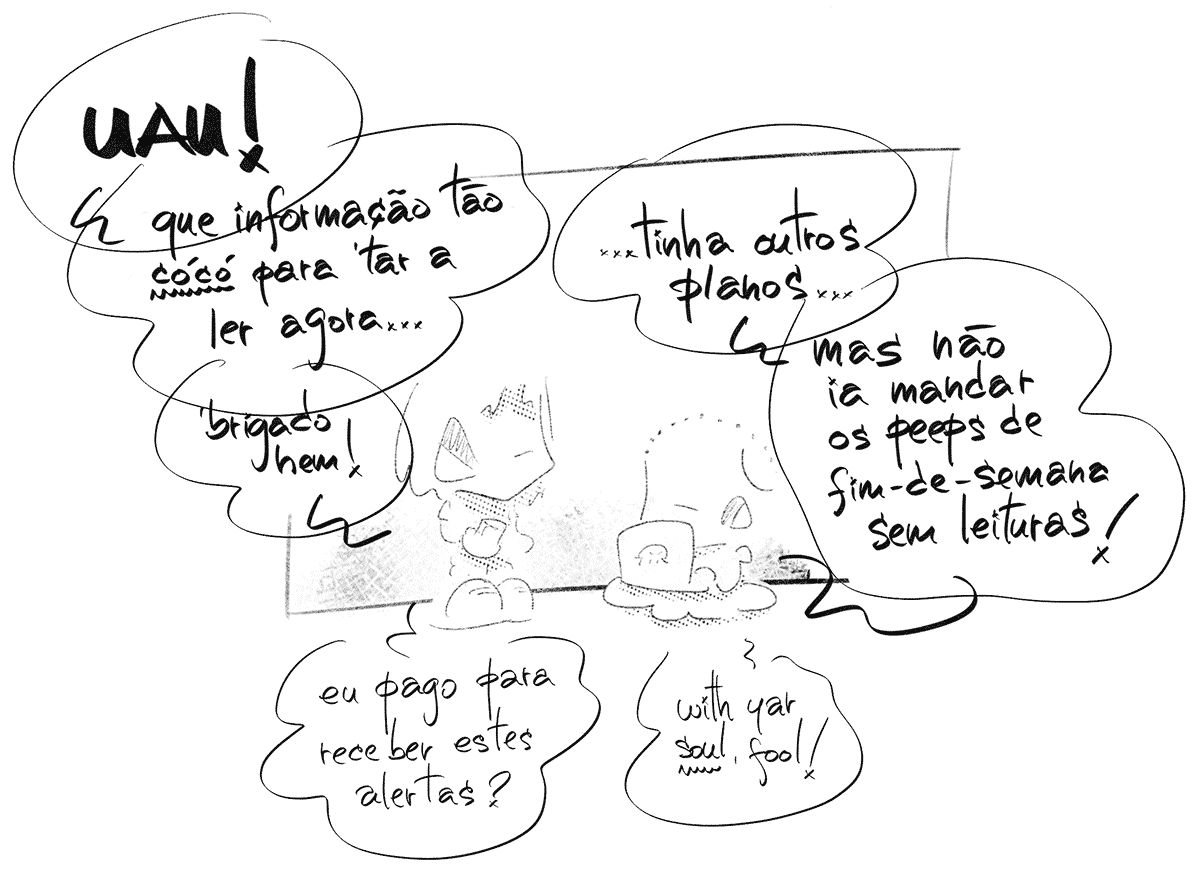 UAU!
que informação tão
cócó para 'tar a
ler agora...
'brigado
hem!
...tinha outros
planos...
mas não
ia mandar
os peeps de
fim-de-semana
sem leituras!
eu pago para
receber estes
alertas?
with yar
soul, fool!